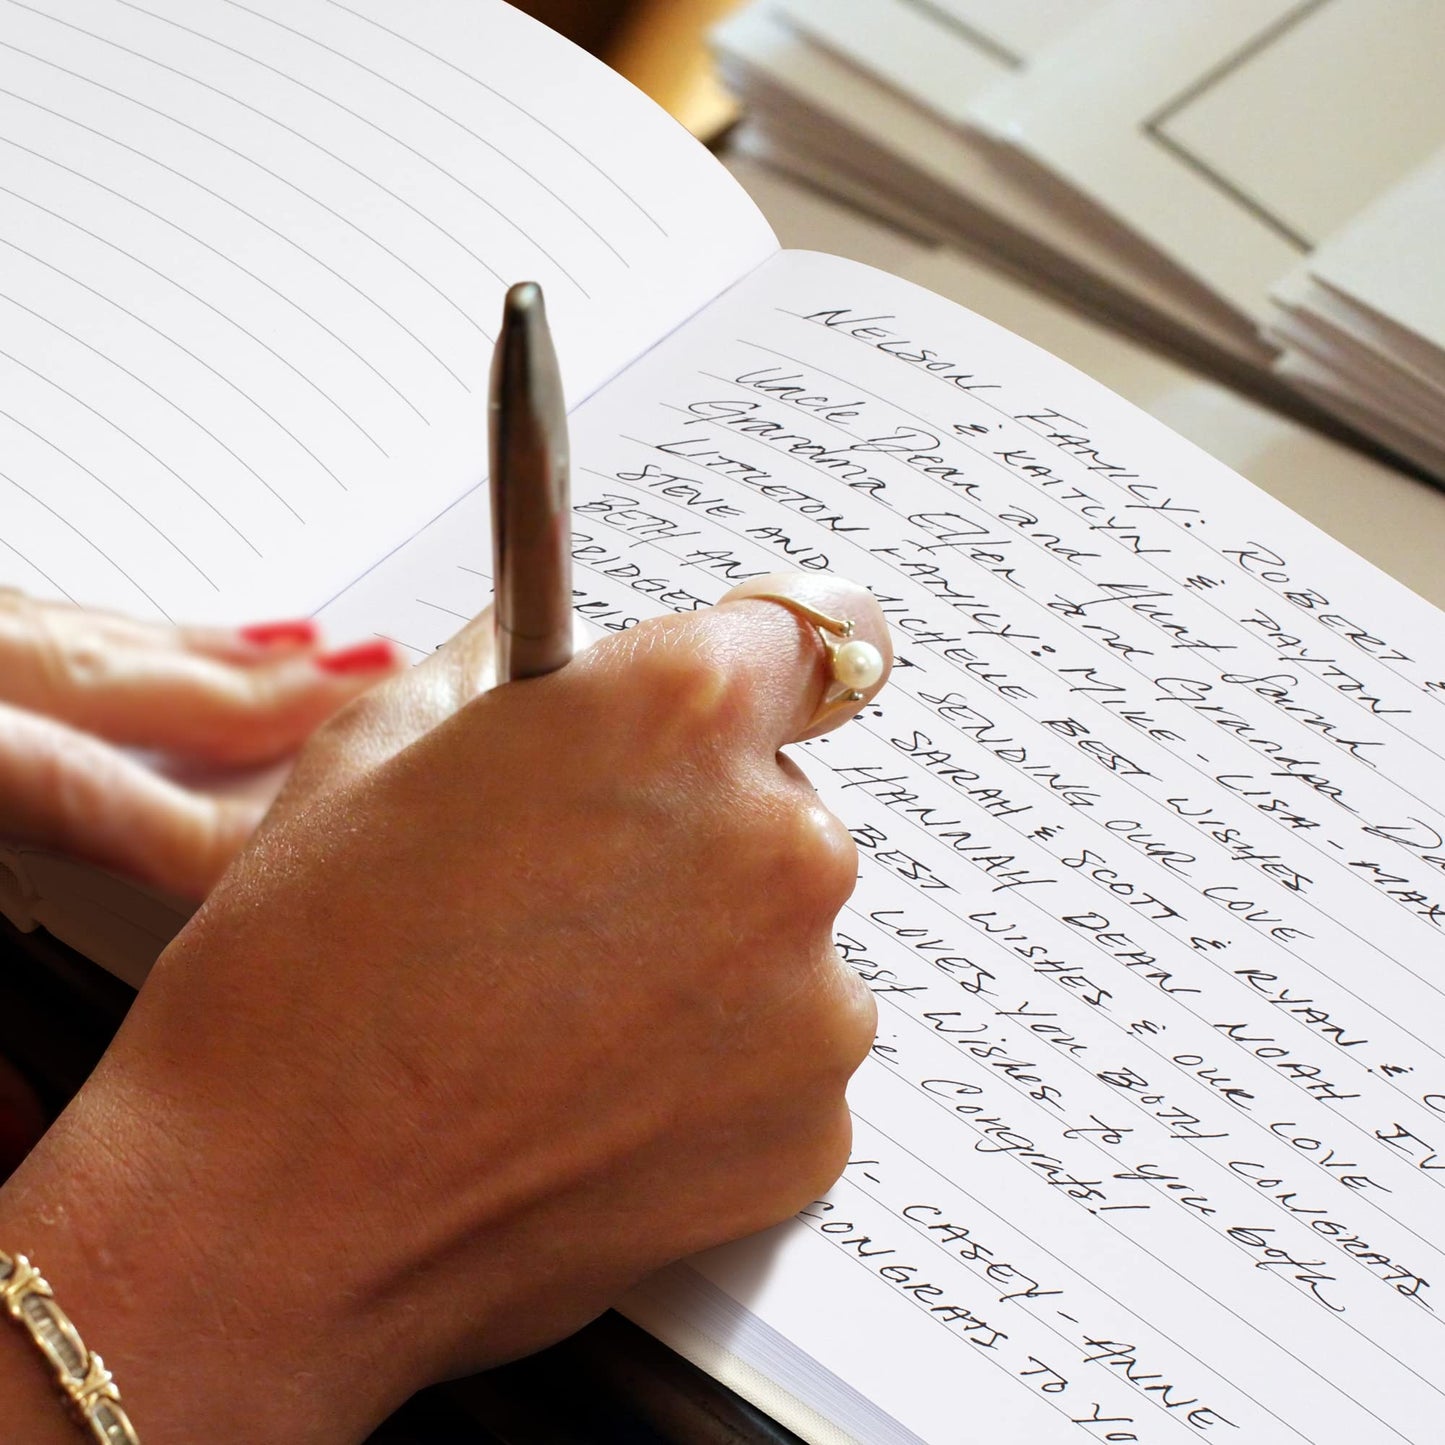 NELSON FAMILY: ROBERT &
& KAITLYN & PAYTON
Uncle Dean and Aunt Sarah
Grandma Ellen and Grandpa Da
LITTLETON FAMILY: MIKE - LISA - MAX
STEVE AND MICHELLE BEST WISHES
BETH AN SENDING OUR LOVE
SARAH & SCOTT & RYAN & C
HANNAH DEAN NOAH IV
BEST WISHES & OUR LOVE
LOVES YOU BOTH CONGRATS
Best Wishes to you both
Congrats!
CASEY - ANNE
CONGRATS TO YO